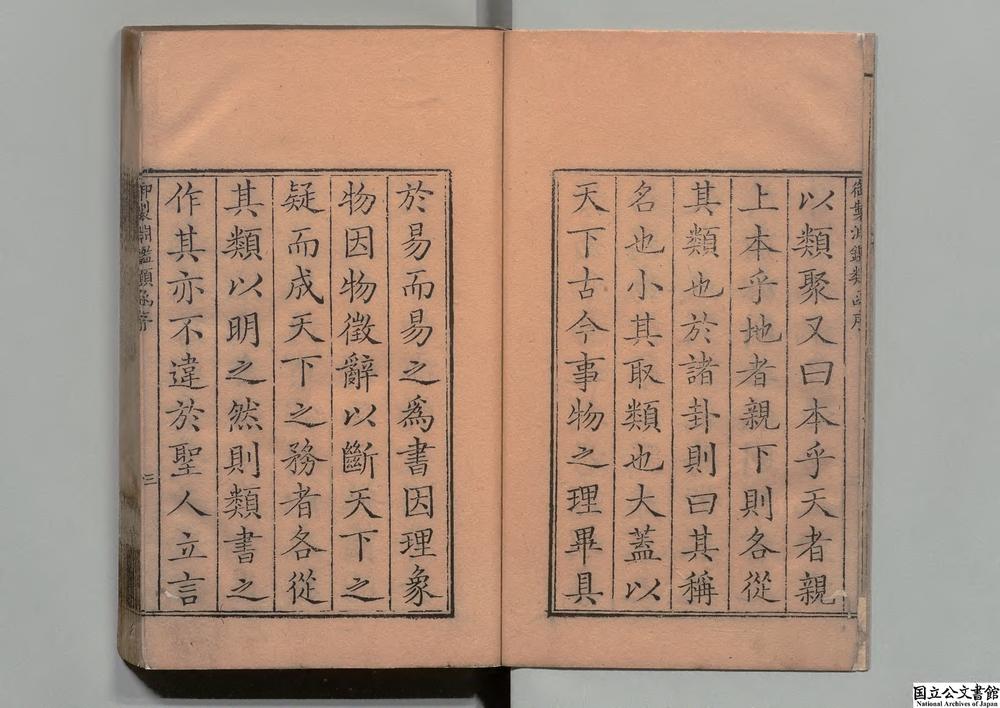 御製淵鑑類函序
以類聚又曰本乎天者親
上本乎地者親下則各從
其類也於諸卦則曰其稱
名也小其取類也大蓋以
天下古今事物之理畢具
於易而易之爲書因理象
物因物徵辭以斷天下之
疑而成天下之務者各從
其類以明之然則類書之
作其亦不違於聖人立言
御製淵鑑類函序
三
国立公文書館
National Archives of Japan